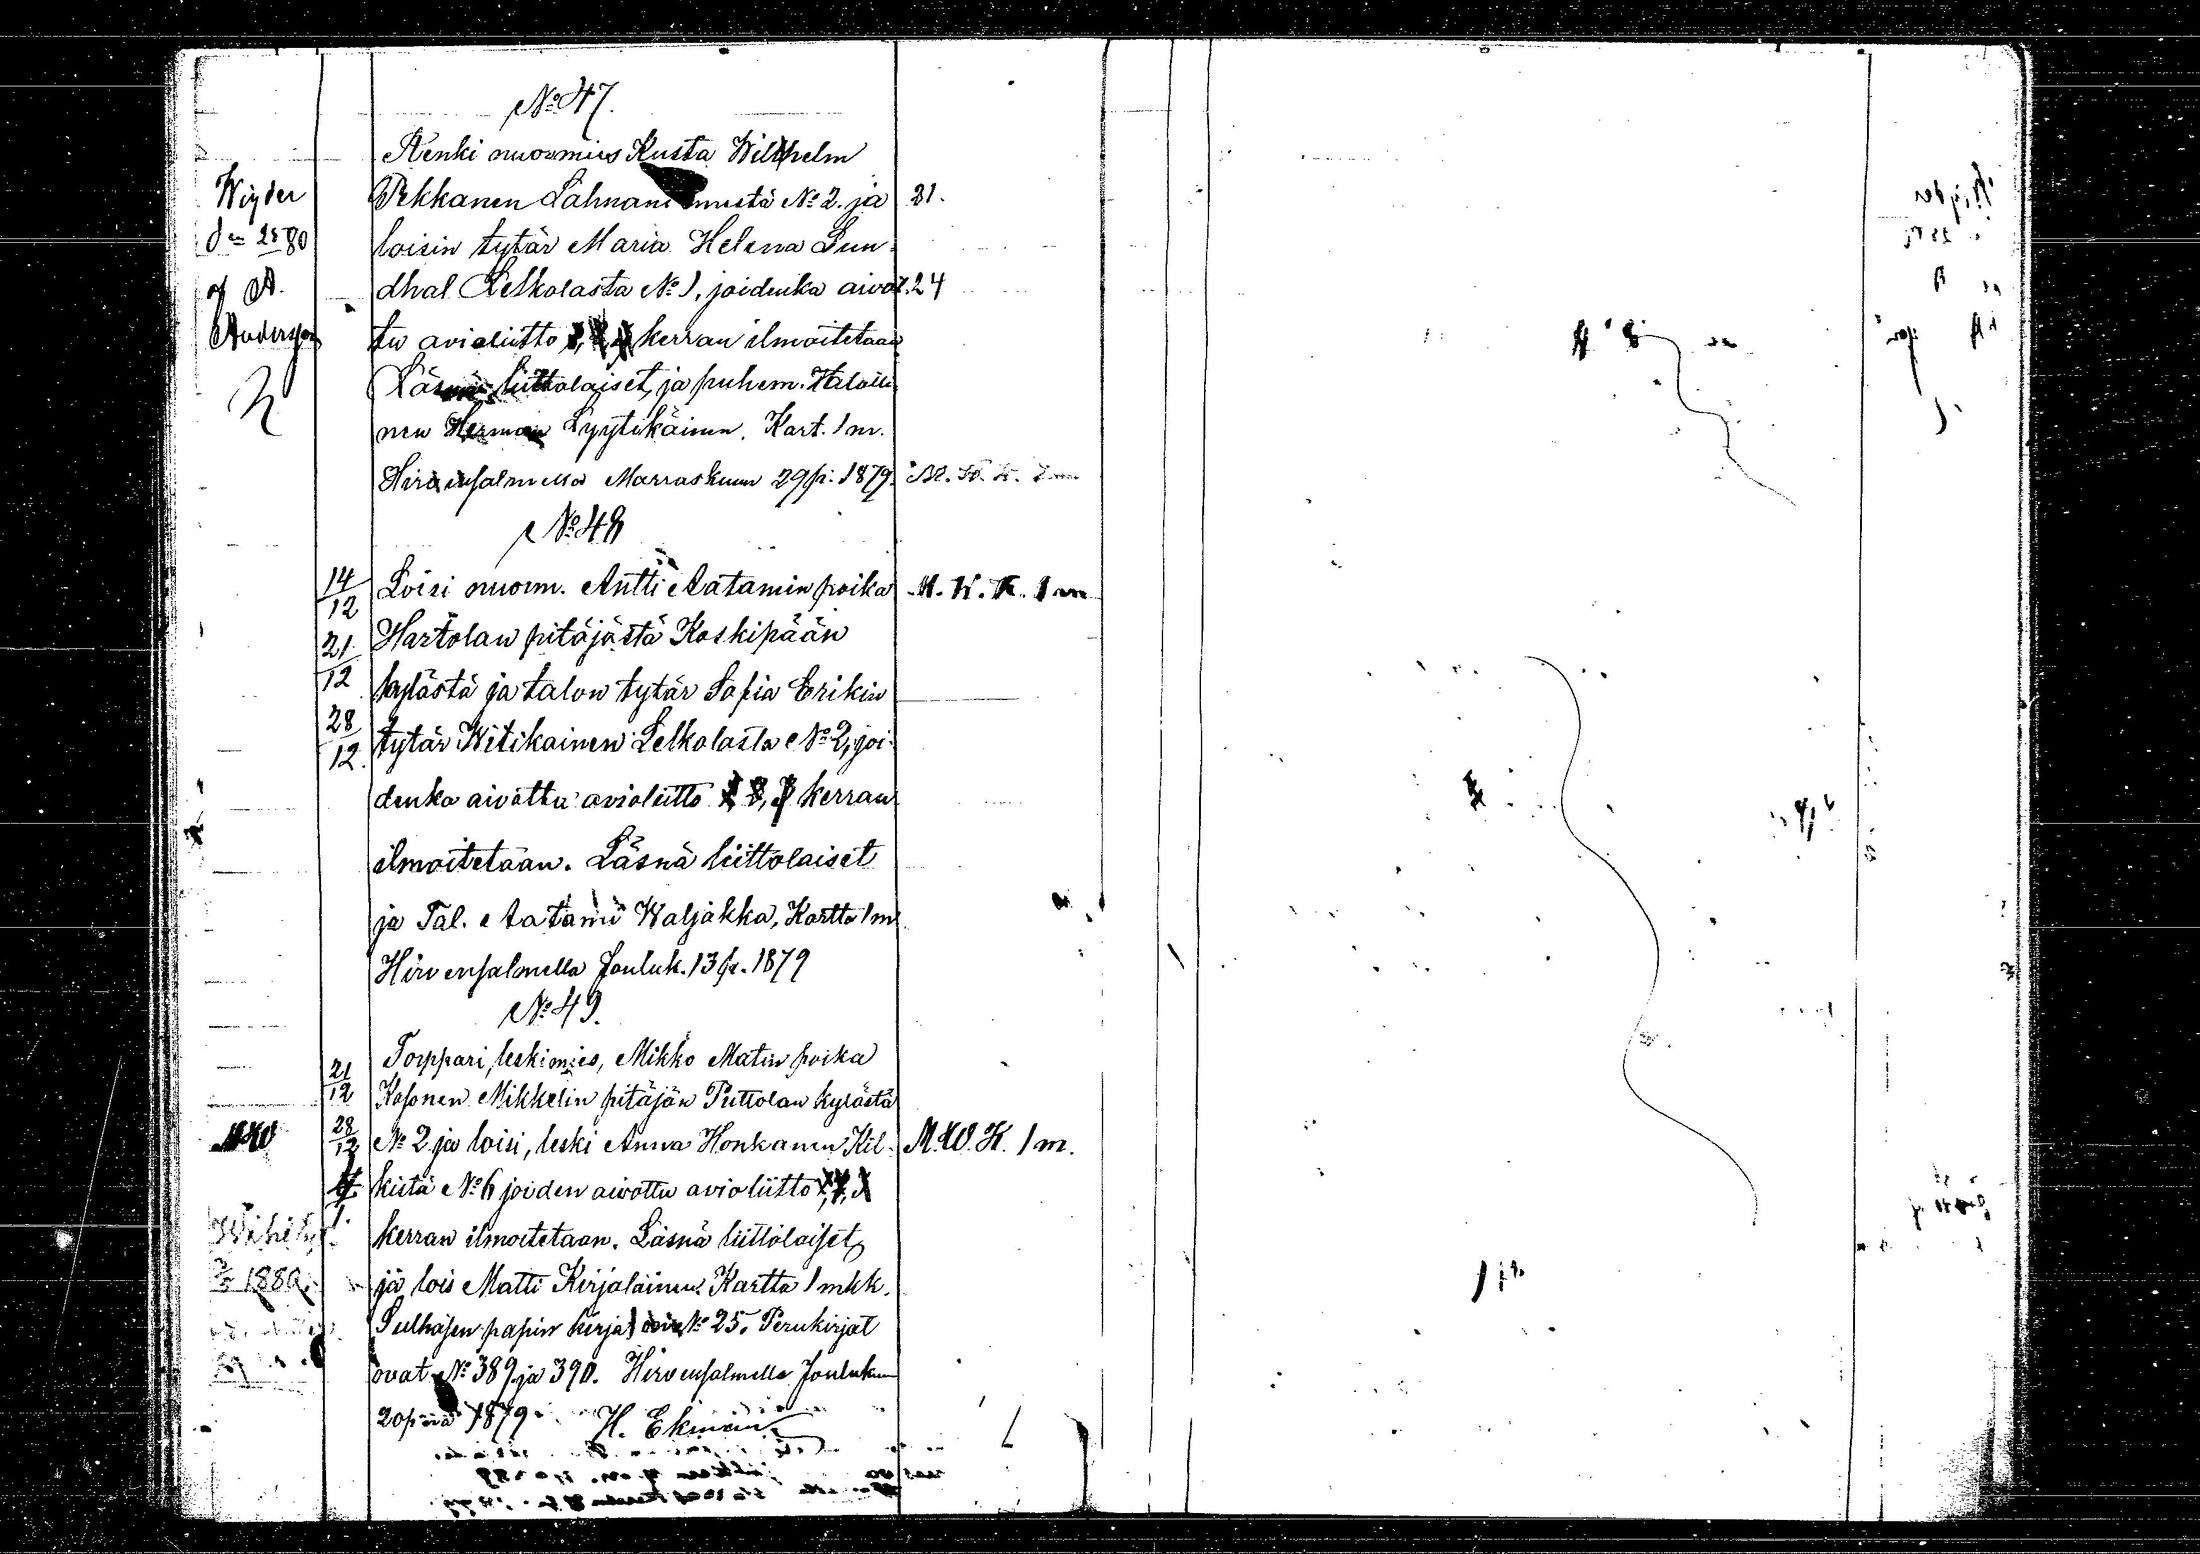 No 47.
Renki nuormies Kusta Wilhelm
Pekkanen Lahnaniemestä No 2. ja 31.
loisin tytär Maria Helena Sun-
dhal Lelkolasta No 1, joidenka aivot- 24
tu avioliitto 1, 2, 3 kerran ilmoitetaan
Läsnä liittolaiset, ja puhem. Talolli-
nen Herman Lyytikäinen. Kart. 1 m.
Hirvensalmella Marraskuun 29 p. 1879.
Wigder
d= 25/ 80
af A.
Andersson
No 48
14/12 Loisi nuorm. Antti Aatamin poika M. W. K. 1 m
21/12 Hartolan pitäjästä Koskipään
kylästä ja talon tytär Sofia Erikin
28/12 tytär Witikainen Lelkolasta No 2, joi-
denka aivottu avioliitto 1, 2, 3 kerran
ilmoitetaan. Läsnä liittolaiset
ja Tal. Aatami Waljakka, Kartta 1 m
Hirvensalmella Jouluk. 13 p. 1879
No 49.
Torppari, leskimies, Mikko Matin poika
21/12 Kosonen Mikkelin pitäjän Piittolan kylästä
28/12 No 2 ja loisi, leski Anna Honkanen Kil- M. W. K. 1 m.
kistä No 6 joiden aivottu avioliitto 1, 2, 3
kerran ilmoitetaan. Läsnä liittolaiset,
ja lois Matti Kirjalainen. Kartta 1 mkk.
Sulhasen papin kirja No 25. Perukirjat
ovat No 389 ja 390. Hirvensalmella Joulukuun
20 p:nä 1879. H. Ekman
1880